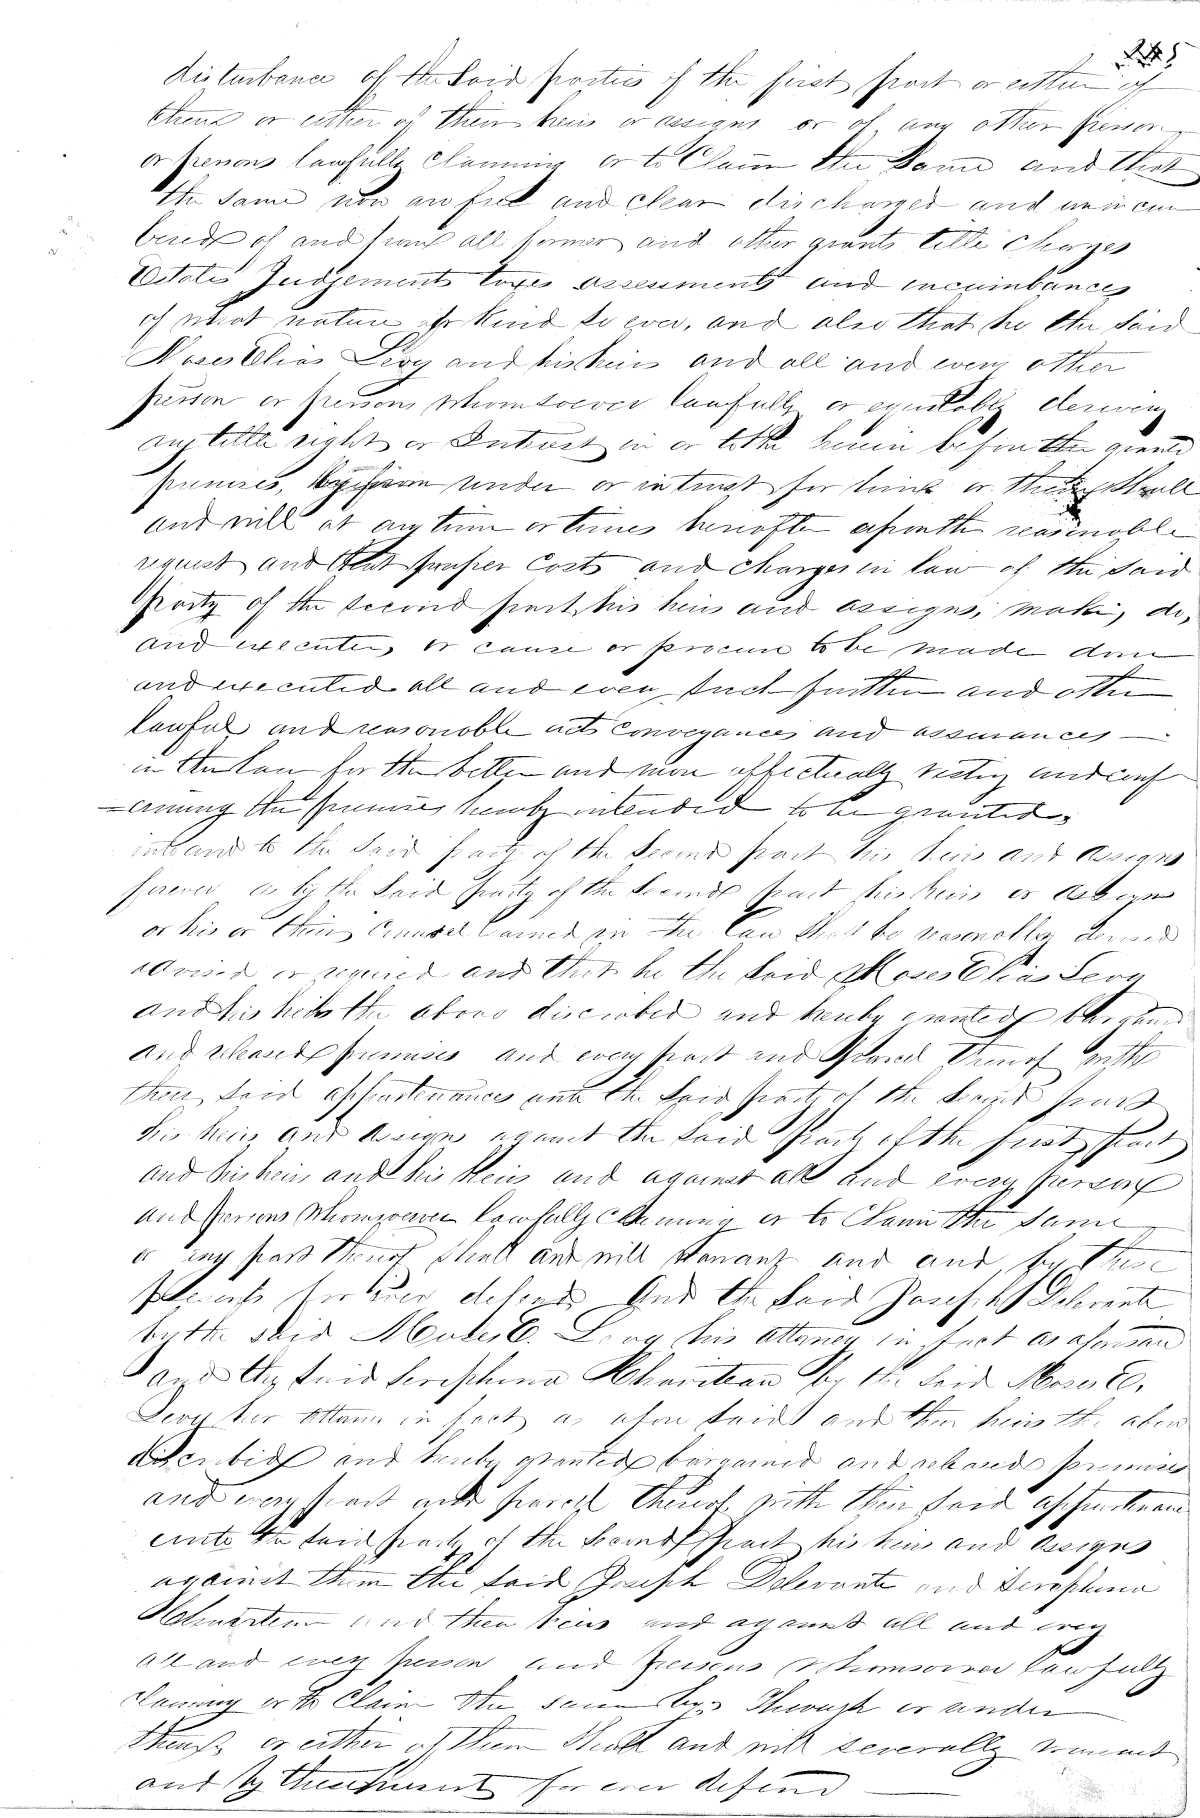 245
disturbance of the Said parties of the first part or either of
them or either of their heirs or assigns or of any other person
or persons lawfully claiming or to Claim the Same and that
the same now are free and clear discharged and unincum
bered of and from all former and other grants title charges
Estates Judgements taxes assessments and incumbances
of what nature or Kind so ever, and also that he the Said
Moses Elias Levy and his heirs and all and every other
person or persons whomsoever lawfully or equitably deriving
any title right or Intrest in or to the herein before the granted
premises, by from under or in trust for him or them Shall
and will at any time or times hereafter upon the reasonable
request and at proper Costs and charges in law of the said
Party of the second part, his heirs and assigns, make, do,
and execute, or cause or procure to be made done
and executed all and every such further and other
lawful and reasonable acts conveyances and assurances
in the law for the better and more effectually vesting and conf
=erming the premises hereby intended to be granted,
into and to the Said party of the Second part his heirs and assigns
forever as by the Said party of the Second part his heirs or assigns
or his or their Counsel learned in the Law Shall be reasonably devised
advised or required and that he the Said Moses Elias Levy
and his heirs the above discribed and hereby granted bargained
and released premises and every part and Parcel thereof with
their Said appurtenances unto the Said party of the Second part
his heirs and assigns against the Said Party of the first part
and his heirs and his Heirs and against all and every person
and persons Whomsoever lawfully claiming or to Claim the same
or any part thereof Shall and will Warrant and and by these
presents for ever defend And the Said Joseph Delevante
by the said Moses E. Levy his attorney in fact as aforesaid
and the Said Seraphina Chauviteau by the Said Moses E.
Levy her attorney in fact as afore Said and their heirs the above
discribed and hereby granted bargained and released premises
and every part and parcel thereof with their Said appurtenances
unto the Said party of the Second part his heirs and assigns
against them the Said Joseph Delevante and Seraphina
Chauviteau and their heirs and against all and every
all and every person and persons whomsoever lawfully
claiming or to Claim the same by, Through or under
them, or either of them Shall and will severally warrant
and by these present for ever defend